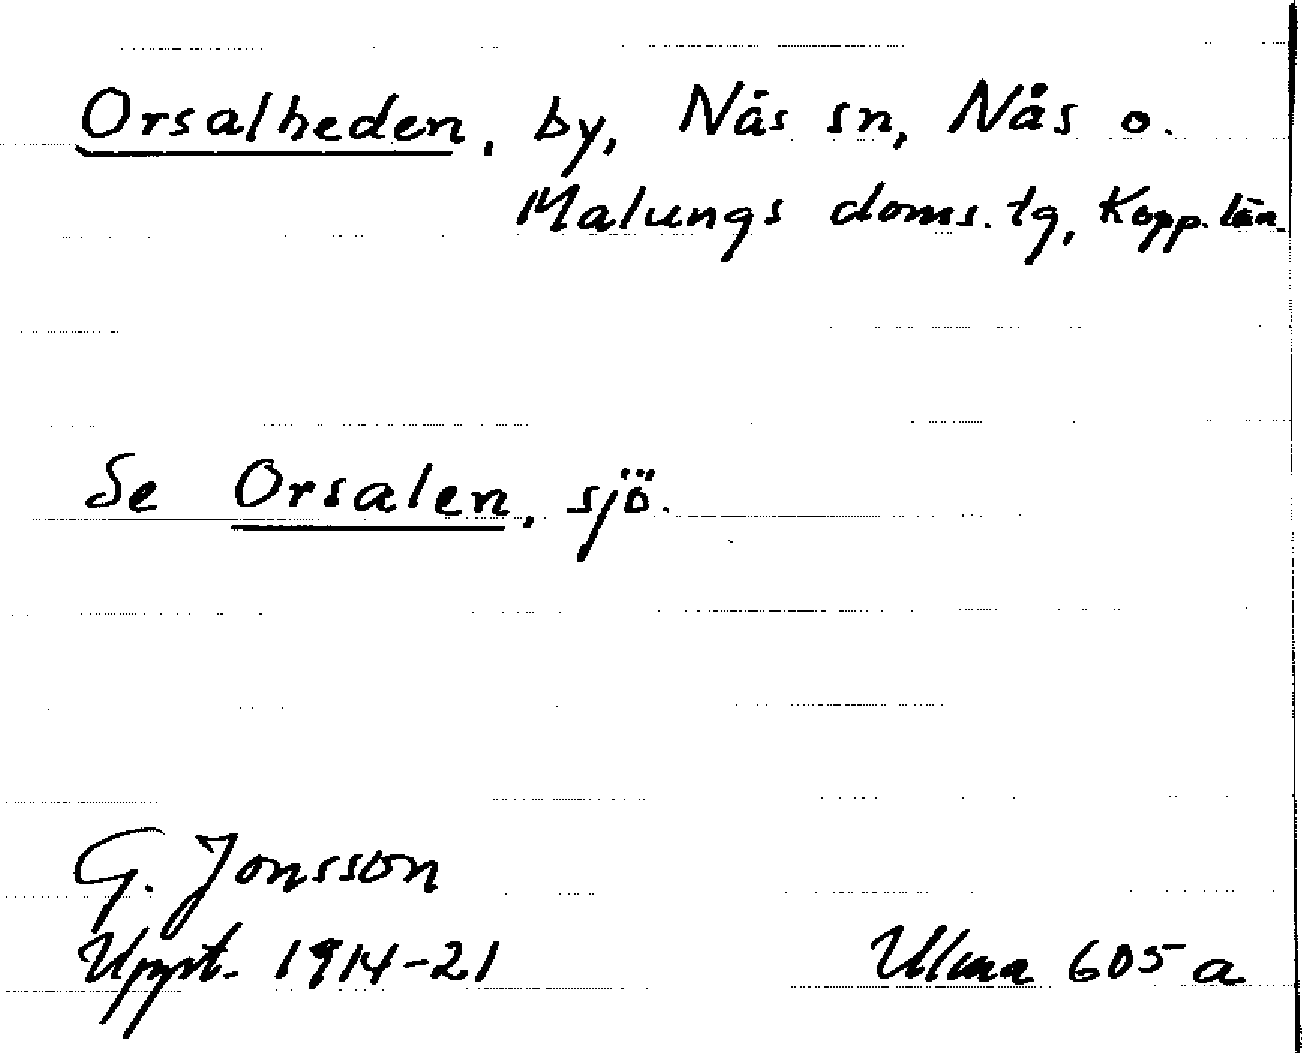 Orsalheden, by, Nås sn, Nås o.
Malungs doms. tg, Kopp. län.
Se Orsalen, sjö.
G. Jonsson
Uppt. 1914-21 Ulma 605 a